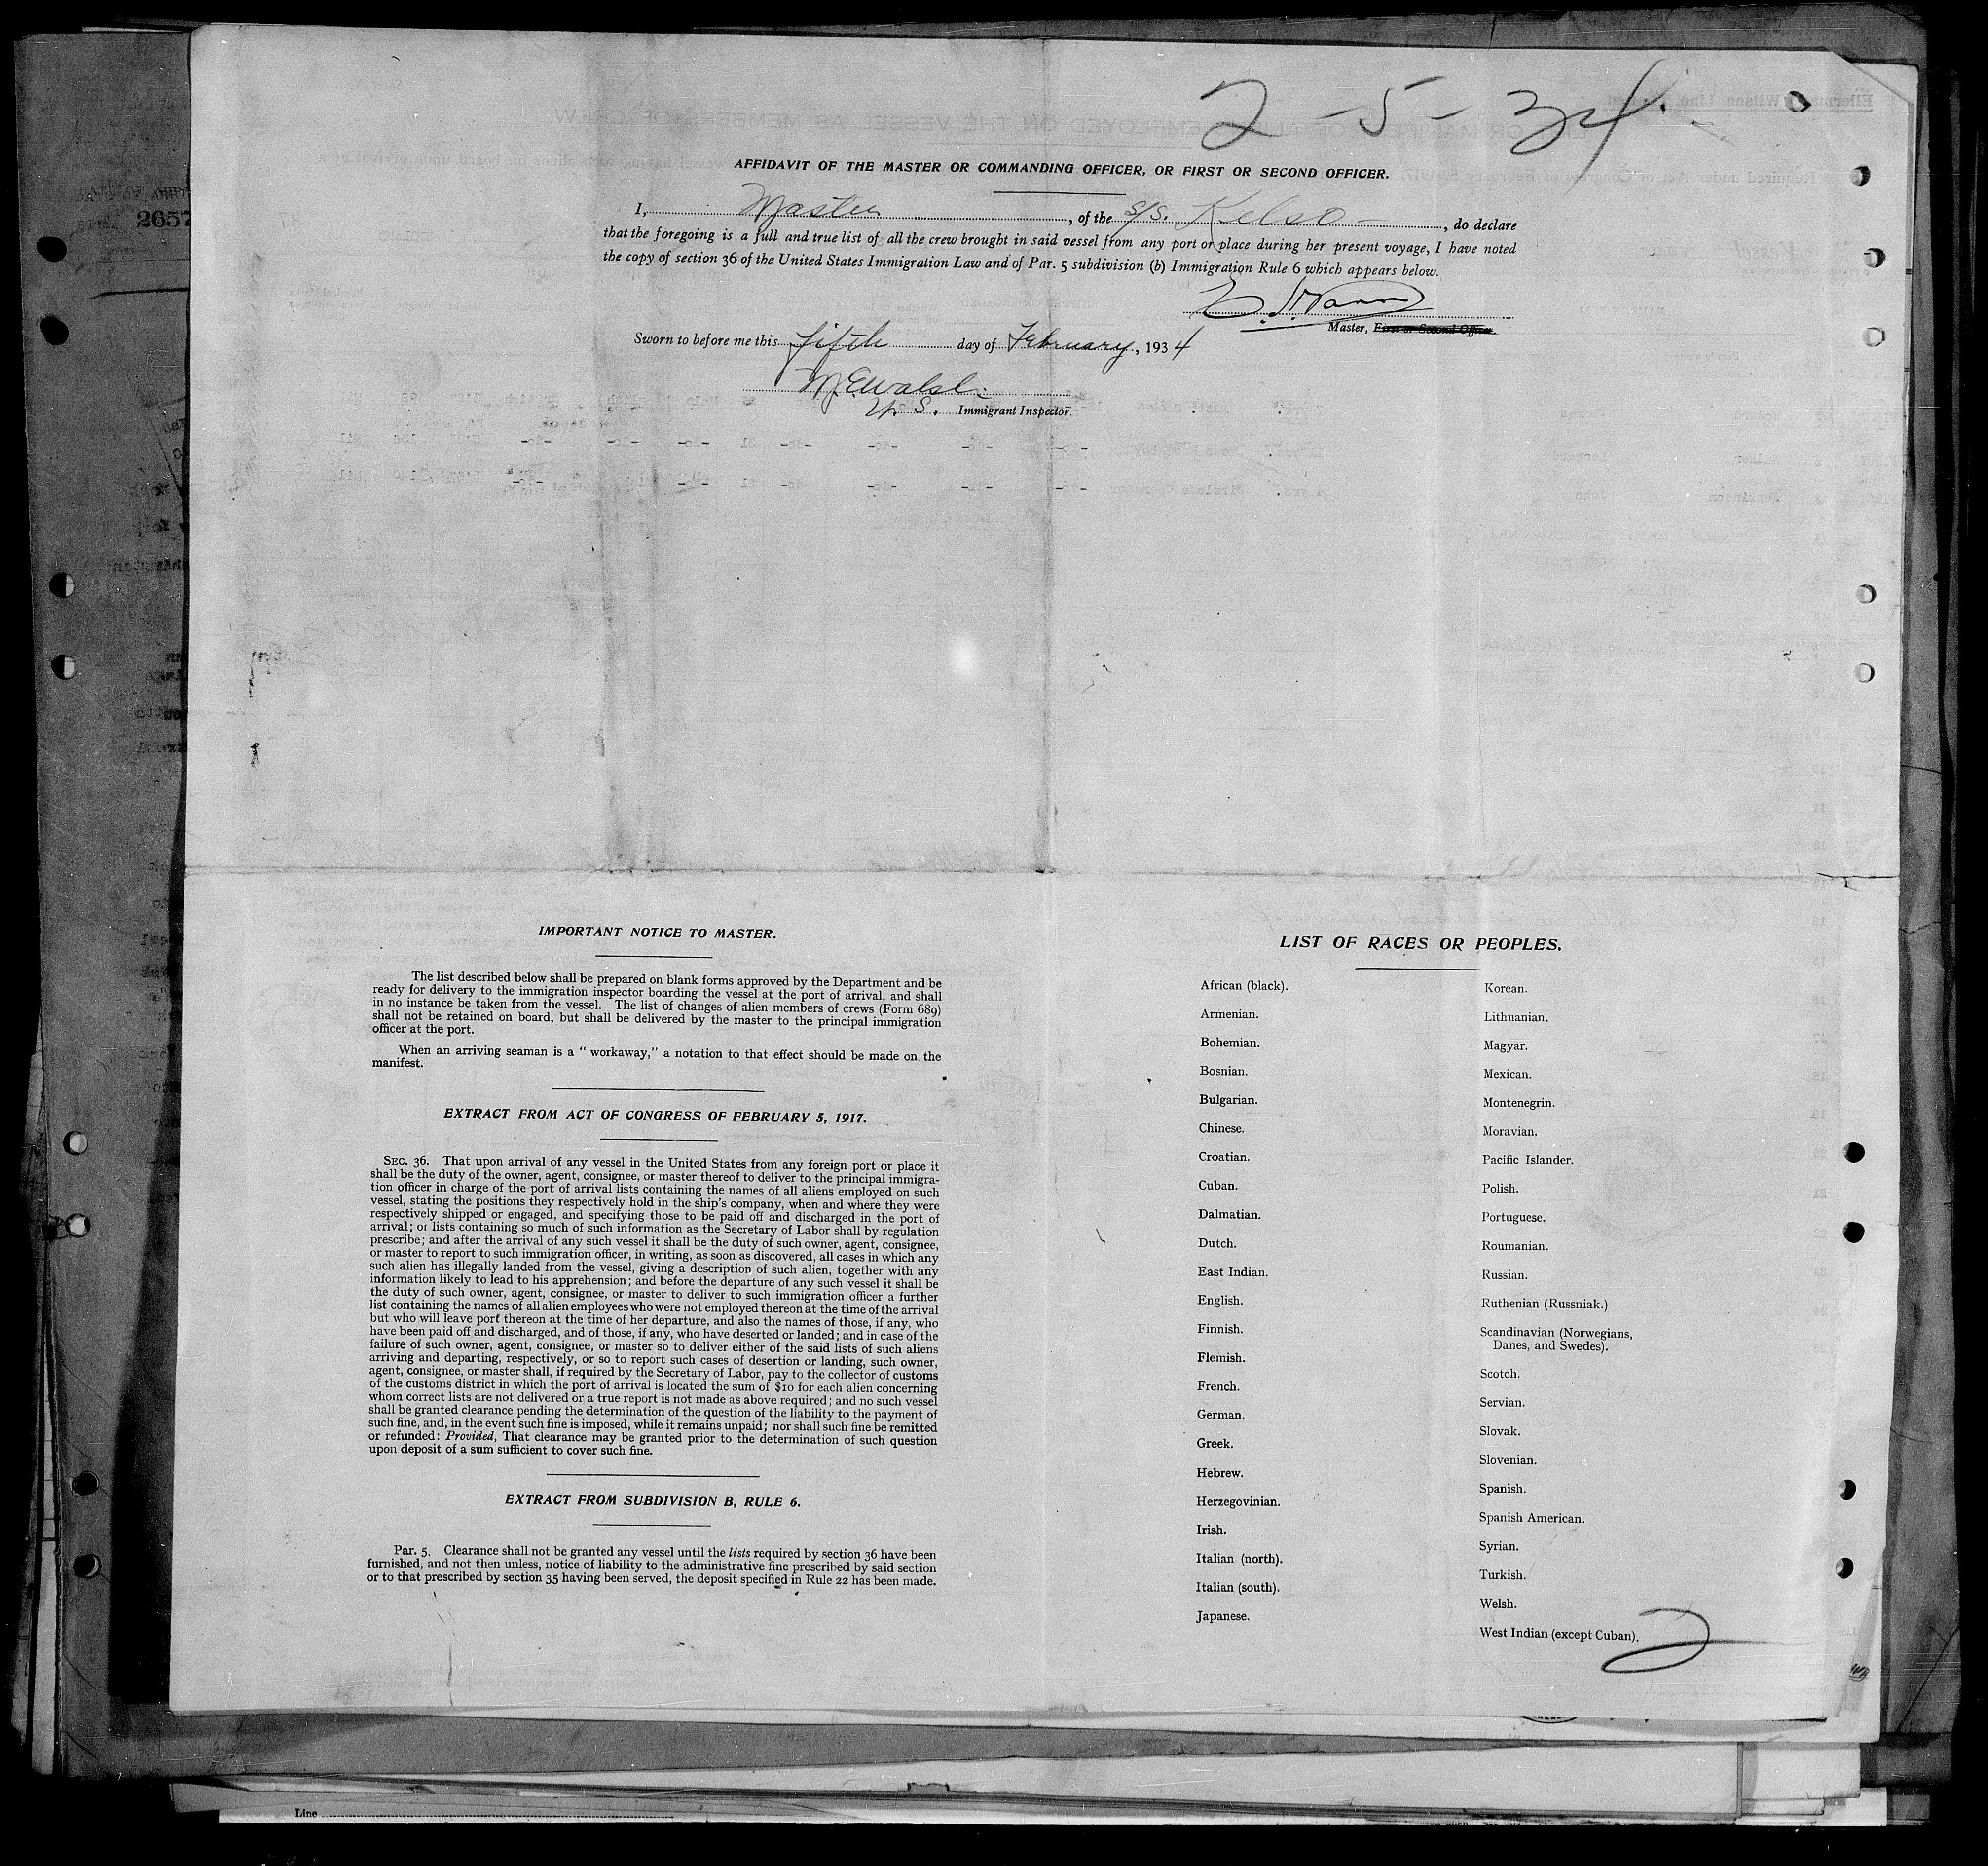 2-5-34
AFFIDAVIT OF THE MASTER OR COMMANDING OFFICER, OR FIRST OR SECOND OFFICER.
I, Master, of the S/S. Kelso, do declare
that the foregoing is a full and true list of all the crew brought in said vessel from any port or place during her present voyage, I have noted
the copy of section 36 of the United States Immigration Law and of Par. 5 subdivision (b) Immigration Rule 6 which appears below.
Master, First or Second Officer.
Sworn to before me this fifth day of February, 1934
M.E. Walsh
U.S. Immigrant Inspector
2657
IMPORTANT NOTICE TO MASTER.
The list described below shall be prepared on blank forms approved by the Department and be
ready for delivery to the immigration inspector boarding the vessel at the port of arrival, and shall
in no instance be taken from the vessel. The list of changes of alien members of crews (Form 689)
shall not be retained on board, but shall be delivered by the master to the principal immigration
officer at the port.
When an arriving seaman is a " workaway," a notation to that effect should be made on the
manifest.
EXTRACT FROM ACT OF CONGRESS OF FEBRUARY 5, 1917.
SEC. 36. That upon arrival of any vessel in the United States from any foreign port or place it
shall be the duty of the owner, agent, consignee, or master thereof to deliver to the principal immigra-
tion officer in charge of the port of arrival lists containing the names of all aliens employed on such
vessel, stating the positions they respectively hold in the ship's company, when and where they were
respectively shipped or engaged, and specifying those to be paid off and discharged in the port of
arrival; or lists containing so much of such information as the Secretary of Labor shall by regulation
prescribe; and after the arrival of any such vessel it shall be the duty of such owner, agent, consignee,
or master to report to such immigration officer, in writing, as soon as discovered, all cases in which any
such alien has illegally landed from the vessel, giving a description of such alien, together with any
information likely to lead to his apprehension; and before the departure of any such vessel it shall be
the duty of such owner, agent, consignee, or master to deliver to such immigration officer a further
list containing the names of all alien employees who were not employed thereon at the time of the arrival
but who will leave port thereon at the time of her departure, and also the names of those, if any, who
have been paid off and discharged, and of those, if any, who have deserted or landed; and in case of the
failure of such owner, agent, consignee, or master so to deliver either of the said lists of such aliens
arriving and departing, respectively, or so to report such cases of desertion or landing, such owner,
agent, consignee, or master shall, if required by the Secretary of Labor, pay to the collector of customs
of the customs district in which the port of arrival is located the sum of $10 for each alien concerning
whom correct lists are not delivered or a true report is not made as above required; and no such vessel
shall be granted clearance pending the determination of the question of the liability to the payment of
such fine, and, in the event such fine is imposed, while it remains unpaid; nor shall such fine be remitted
or refunded: Provided, That clearance may be granted prior to the determination of such question
upon deposit of a sum sufficient to cover such fine.
EXTRACT FROM SUBDIVISION B, RULE 6.
Par. 5. Clearance shall not be granted any vessel until the lists required by section 36 have been
furnished, and not then unless, notice of liability to the administrative fine prescribed by said section
or to that prescribed by section 35 having been served, the deposit specified in Rule 22 has been made.
LIST OF RACES OR PEOPLES.
African (black).
Armenian.
Bohemian.
Bosnian.
Bulgarian.
Chinese.
Croatian.
Cuban.
Dalmatian.
Dutch.
East Indian.
English.
Finnish.
Flemish.
French.
German.
Greek.
Hebrew.
Herzegovinian.
Irish.
Italian (north).
Italian (south).
Japanese.
Korean.
Lithuanian.
Magyar.
Mexican.
Montenegrin.
Moravian.
Pacific Islander.
Polish.
Portuguese.
Roumanian.
Russian.
Ruthenian (Russniak.)
Scandinavian (Norwegians,
Danes, and Swedes).
Scotch.
Servian.
Slovak.
Slovenian.
Spanish.
Spanish American.
Syrian.
Turkish.
Welsh.
West Indian (except Cuban).
2
Line